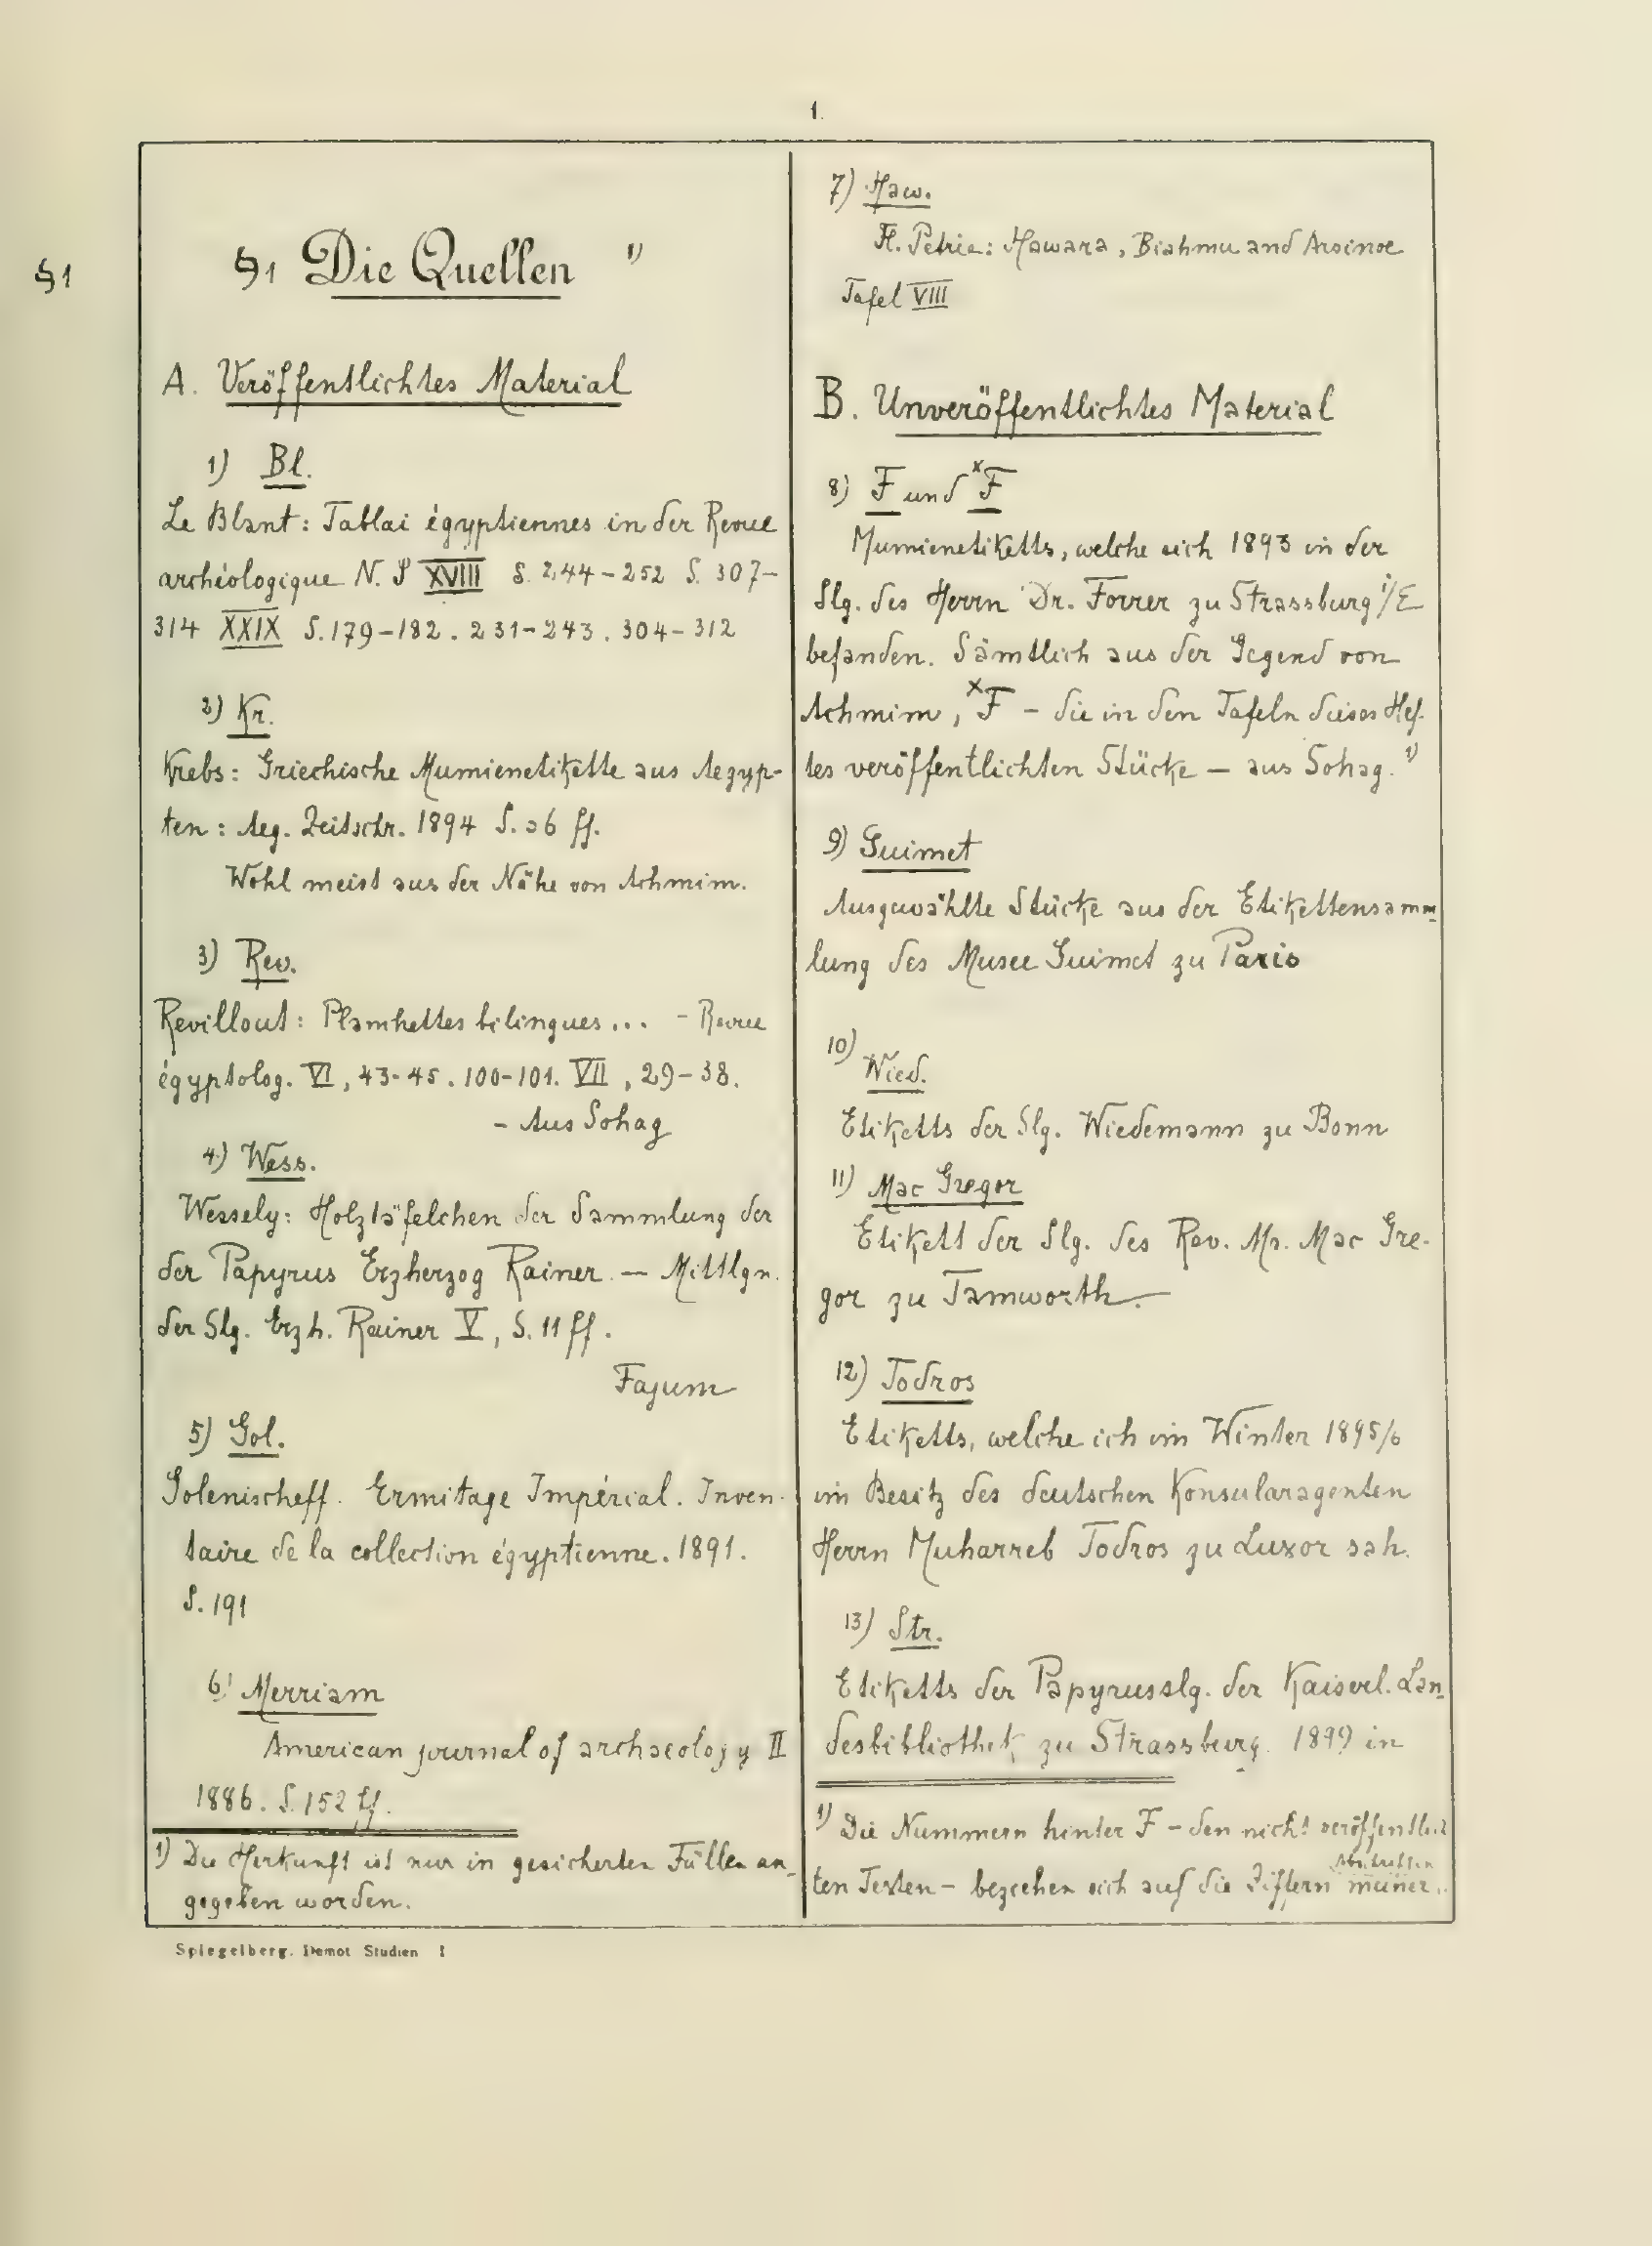 1.
§1
§1 Die Quellen 1)
A. Veröffentlichtes Material
1) Bl.
Le Blant: Tablai égyptiennes in der Revue
archéologique N. S XVIII S. 244-252 S. 307-
314 XXIX S. 179-182. 231-243. 304-312
2) Kr.
Krebs: Griechische Mumienetikette aus Aegyp-
ten: Aeg. Zeitschr. 1894 S. 36 ff.
Wohl meist aus der Nähe von Achmim.
3) Rev.
Revillout: Planchettes bilingues... - Revue
égyptolog. VI, 43-45. 100-101. VII, 29-38.
- Aus Sohag
4) Wess.
Wessely: Holztäfelchen der Sammlung der
der Papyrus Erzherzog Rainer. — Mittlgn.
der Slg. Erzh. Rainer V, S. 11 ff.
Fajum
5) Gol.
Golenischeff. Ermitage Impérial. Inven-
taire de la collection égyptienne. 1891.
S. 191
6) Merriam
American journal of archaeology II
1886. S. 152 ff.
1) Die Herkunft ist nur in gesicherten Fällen an-
gegeben worden.
7) Haw.
Fl. Petrie: Hawara, Biahmu and Arsinoe
Tafel VIII
B. Unveröffentlichtes Material
8) F und ˣF
Mumienetiketts, welche sich 1893 in der
Slg. des Herrn Dr. Forrer zu Strassburg i/E
befanden. Sämtlich aus der Gegend von
Achmim, ˣF - die in den Tafeln dieses Hef-
tes veröffentlichten Stücke — aus Sohag. 1)
9) Guimet
Ausgewählte Stücke aus der Etikettensamm-
lung des Musee Guimet zu Paris
10) Wied.
Etiketts der Slg. Wiedemann zu Bonn
11) Mac Gregor
Etikett der Slg. des Rev. Mr. Mac Gre-
gor zu Tamworth.
12) Todros
Etiketts, welche ich im Winter 1895/6
im Besitz des deutschen Konsularagenten
Herrn Muharreb Todros zu Luxor sah.
13) Str.
Etiketts der Papyrusslg. der Kaiserl. Lan-
desbibliothek zu Strassburg. 1899 in
1) Die Nummern hinter F - den nicht veröffentlich
ten Texten - beziehen sich auf die Ziffern meiner Abschriften
Spiegelberg, Demot Studien I